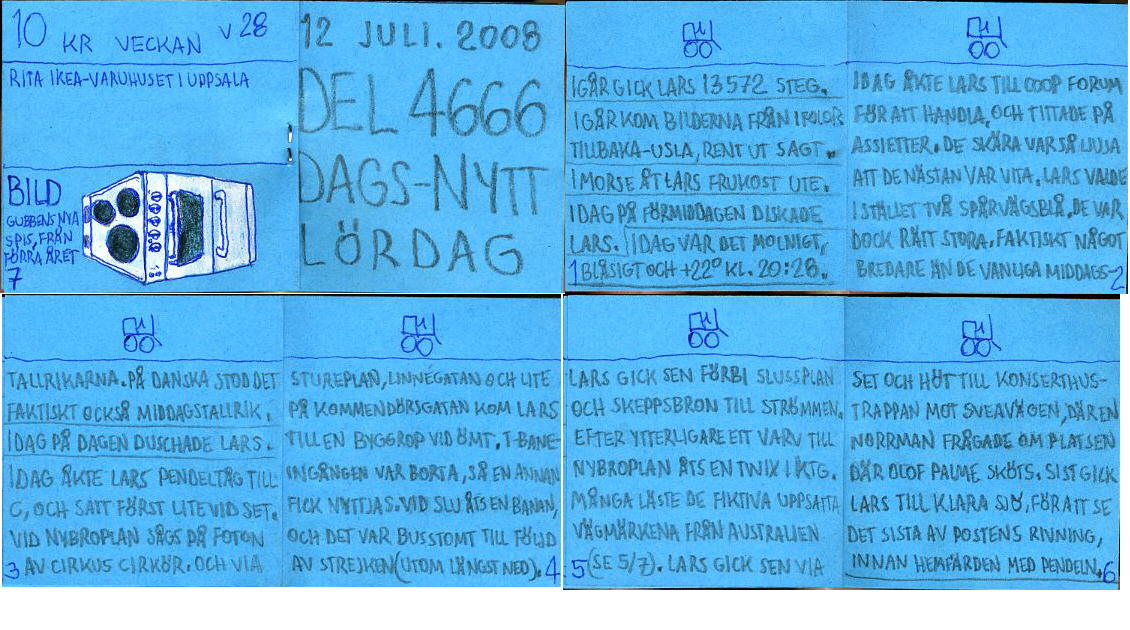 10 KR VECKAN V 28
RITA IKEA-VARUHUSET I UPPSALA
BILD
GUBBENS NYA
SPIS, FRÅN
FÖRRA ÅRET
7
12 JULI. 2008
DEL 4666
DAGS-NYTT
LÖRDAG
IGÅR GICK LARS 13572 STEG.
IGÅR KOM BILDERNA FRÅN IFOLOR
TILLBAKA-USLA, RENT UT SAGT.
I MORSE ÅT LARS FRUKOST UTE.
IDAG PÅ FÖRMIDDAGEN DISKADE
LARS. IDAG VAR DET MOLNIGT,
1 BLÅSIGT OCH +22° KL. 20:28.
IDAG ÅKTE LARS TILL COOP FORUM
FÖR ATT HANDLA, OCH TITTADE PÅ
ASSIETTER. DE SKÄRA VAR SÅ LJUSA
ATT DE NÄSTAN VAR VITA. LARS VALDE
ISTÄLLET TVÅ SPÅRVÄGSBLÅ. DE VAR
DOCK RÄTT STORA, FAKTISKT NÅGOT
BREDARE ÄN DE VANLIGA MIDDAGS- 2
TALLRIKARNA. PÅ DANSKA STOD DET
FAKTISKT OCKSÅ MIDDAGSTALLRIK.
IDAG PÅ DAGEN DUSCHADE LARS.
IDAG ÅKTE LARS PENDELTÅG TILL
C, OCH SATT FÖRST LITE VID SET.
VID NYBROPLAN SÅGS PÅ FOTON
3 AV CIRKUS CIRKÖR. OCH VIA
STUREPLAN, LINNÉGATAN OCH LITE
PÅ KOMMENDÖRSGATAN KOM LARS
TILL EN BYGGROP VID ÖMT. T-BANE-
INGÅNGEN VAR BORTA, SÅ EN ANNAN
FICK NYTTJAS. VID SLU ÅTS EN BANAN,
OCH DET VAR BUSSTOMT TILL FÖLJD
AV STREJKEN (UTOM LÄNGST NED). 4
LARS GICK SEN FÖRBI SLUSSPLAN
OCH SKEPPSBRON TILL STRÖMMEN.
EFTER YTTERLIGARE ETT VARV TILL
NYBROPLAN ÅTS EN TWIX I KTG.
MÅNGA LÄSTE DE FIKTIVA UPPSATTA
VÄGMÄRKENA FRÅN AUSTRALIEN
5 (SE 5/7). LARS GICK SEN VIA
SET OCH HÖT TILL KONSERTHUS-
TRAPPAN MOT SVEAVÄGEN, DÄR EN
NORRMAN FRÅGADE OM PLATSEN
DÄR OLOF PALME SKÖTS. SIST GICK
LARS TILL KLARA SJÖ, FÖR ATT SE
DET SISTA AV POSTENS RIVNING,
INNAN HEMFÄRDEN MED PENDELN. 6